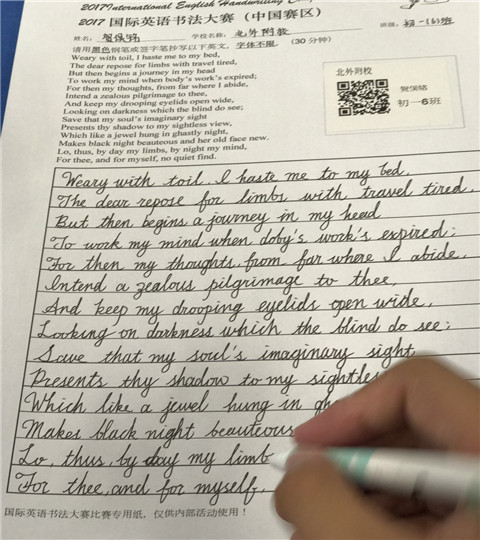 2017 International English Handwriting
2017 国际英语书法大赛（中国赛区）
姓名： 学校名称： 北外附校 班级： 初一（6）班
请用黑色钢笔或签字笔抄写以下英文，字体不限。（30 分钟）
Weary with toil, I haste me to my bed,
The dear repose for limbs with travel tired,
But then begins a journey in my head
To work my mind when body's work's expired;
For then my thoughts, from far where I abide,
Intend a zealous pilgrimage to thee,
And keep my drooping eyelids open wide,
Looking on darkness which the blind do see;
Save that my soul's imaginary sight
Presents thy shadow to my sightless view,
Which like a jewel hung in ghastly night,
Makes black night beauteous and her old face new.
Lo, thus, by day my limbs, by night my mind,
For thee, and for myself, no quiet find.
北外附校
初一6班
Weary with toil, I haste me to my bed.
The dear repose for limbs with travel tired.
But then begins a journey in my head
To work my mind when doby's work's expired;
For then my thoughts, from far where I abide,
Intend a zealous pilgrimage to thee,
And keep my drooping eyelids open wide,
Looking on darkness which the blind do see;
Save that my soul's imaginary sight
Presents thy shadow to my sightles
Which like a jewel hung in gha
Makes black night beauteous
Lo, thus, by day my limb
For thee, and for myself,
国际英语书法大赛比赛专用纸，仅供内部活动使用！